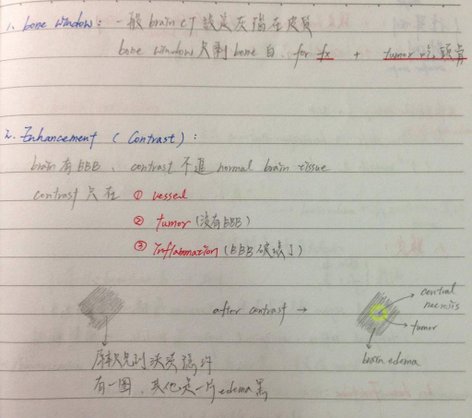 1. bone window: 一般 brain CT
bone window 只剩 bone 白. for fx + tumor 吃頭骨
2. Enhancement (Contrast):
brain 有 BBB、contrast 不進 normal brain tissue
contrast 只在 ① vessel
② tumor (沒有BBB)
③ Inflammation (BBB 破壞了)
after contrast →
central necrosis
tumor
brain edema
有一團, 其他是一片 edema 黑